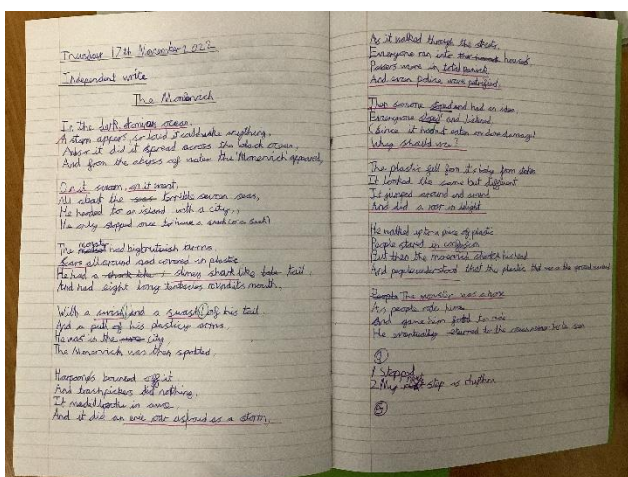 Thursday 17th November 2022
Independent write
The Monervich
In the dark, stormy ocean,
A storm appears, so loud it could wake anything,
And it did it spread across the black ocean,
And from the abyss of water the Monervich appeared,
On it swam, on it went,
All about the terrible seven seas,
He headed to an island with a city,
He only stopped once to have a
The monster had big brutish horns,
Scars all around and covered in plastic
He had a slimey shark like tail,
And had eight long tentacles round its mouth.
With a smash! and a swash! of his tail
And a pull of his plasticy arms,
He was in the city,
The Monervich was then spotted.
Harpoons bounced off it
And trashpickers did nothing,
It in awe,
And it did an roar as loud as a storm,
As it walked through the streets,
Everyone ran into houses,
Passers were in total panick,
And even police were petrified,
Then someone stopped and had an idea,
Everyone and listened,
Since it hadn't eaten or done damage!
Why should we?
The plastic fell from its body
It looked the same but different
It jumped around and around
And did a roar in delight
He walked up to a piece of plastic
People stared in confusion
But then the monervich
And people understood that the plastic
The monster was a hero
As people rode him
And gave him food to
He eventually returned to the to be seen
1. Stopped
2. My next step is rhythm